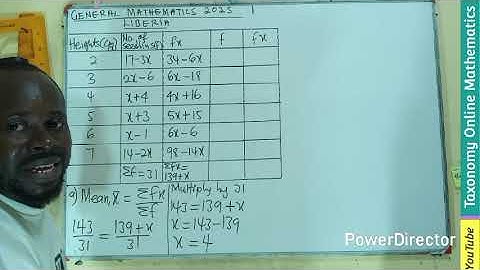 GENERAL MATHEMATICS 2025 1
LIBERIA
Heights(cm) No. of seedlings(f) fx f fx
2 17-3x 34-6x
3 2x-6 6x-18
4 x+4 4x+16
5 x+3 5x+15
6 x-1 6x-6
7 14-2x 98-14x
Σf=31 Σfx=139+x
a) Mean, x̄ = Σfx/Σf
143/31 = 139+x/31
Multiply by 31
143=139+x
x=143-139
x=4
PowerDirector
YouTube Taxonomy Online Mathematics